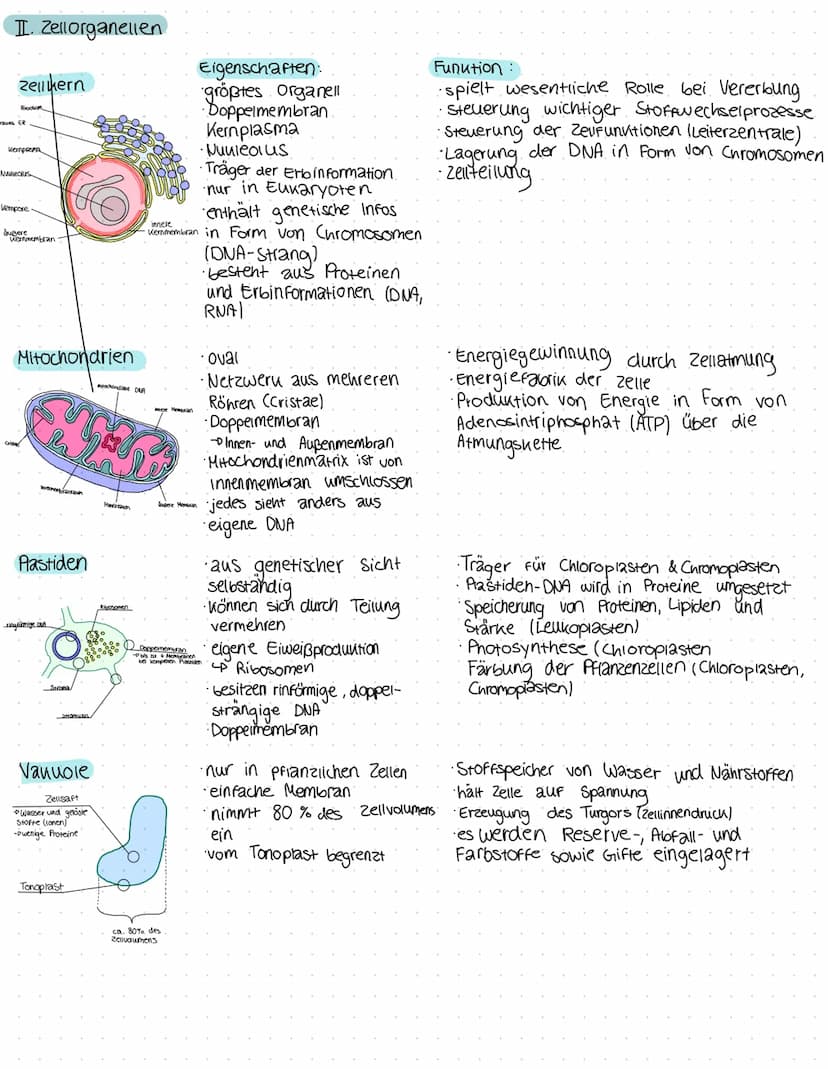 II. Zellorganellen
Eigenschaften:
Funktion:
Zellkern
größtes Organell
Doppelmembran
Kernplasma
Nukleolus
Träger der Erbinformation
nur in Eukaryoten
enthält genetische Infos
in Form von Chromosomen
(DNA-Strang)
besteht aus Proteinen
und Erbinformationen (DNA,
RNA)
spielt wesentliche Rolle bei Vererbung
Steuerung wichtiger Stoffwechselprozesse
Steuerung der Zellfunktionen (Leiterzentrale)
Lagerung der DNA in Form von Chromosomen
Zellteilung
Ribosom
Kernplasma
Nukleolus
Kernpore
äußere
Kernmembran
innere
Kernmembran
Mitochondrien
oval
Netzwerk aus mehreren
Röhren (Cristae)
Doppelmembran
→ Innen- und Außenmembran
Mitochondrienmatrix ist von
Innenmembran umschlossen
jedes sieht anders aus
eigene DNA
Energiegewinnung durch Zellatmung
Energiefabrik der Zelle
Produktion von Energie in Form von
Adenosintriphosphat (ATP) über die
Atmungskette
mitochondriale DNA
innere Membran
Cristae
Intermembranraum
Matrixraum
äußere Membran
Plastiden
aus genetischer Sicht
selbständig
können sich durch Teilung
vermehren
eigene Eiweißproduktion
↳ Ribosomen
besitzen rinförmige, doppel-
strängige DNA
Doppelmembran
Träger für Chloroplasten & Chromoplasten
Plastiden-DNA wird in Proteine umgesetzt
Speicherung von Proteinen, Lipiden und
Stärke (Leukoplasten)
Photosynthese (Chloroplasten
Färbung der Pflanzenzellen (Chloroplasten,
Chromoplasten)
Ribosomen
ringförmige DNA
Doppelmembran
→ bis zu 4 Membranen
bei komplexen Plastiden
Stroma
Stromuli
Vakuole
nur in pflanzlichen Zellen
einfache Membran
nimmt 80 % des Zellvolumens
ein
vom Tonoplast begrenzt
Stoffspeicher von Wasser und Nährstoffen
hält Zelle auf Spannung
Erzeugung des Turgors (Zellinnendruck)
es werden Reserve-, Abfall- und
Farbstoffe sowie Gifte eingelagert
Zellsaft
→ Wasser und gelöste
Stoffe (Ionen)
→ wenige Proteine
Tonoplast
ca. 80% des
Zellvolumens